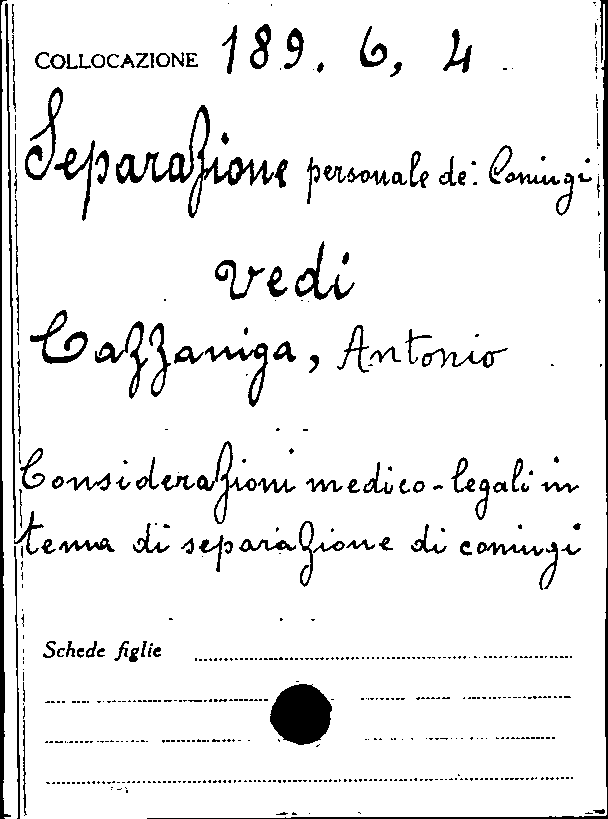 COLLOCAZIONE 189. 6, 4
Separazione personale dei Coniugi
vedi
Cazzaniga, Antonio
Considerazioni medico-legali in
tema di separazione di coniugi
Schede figlie